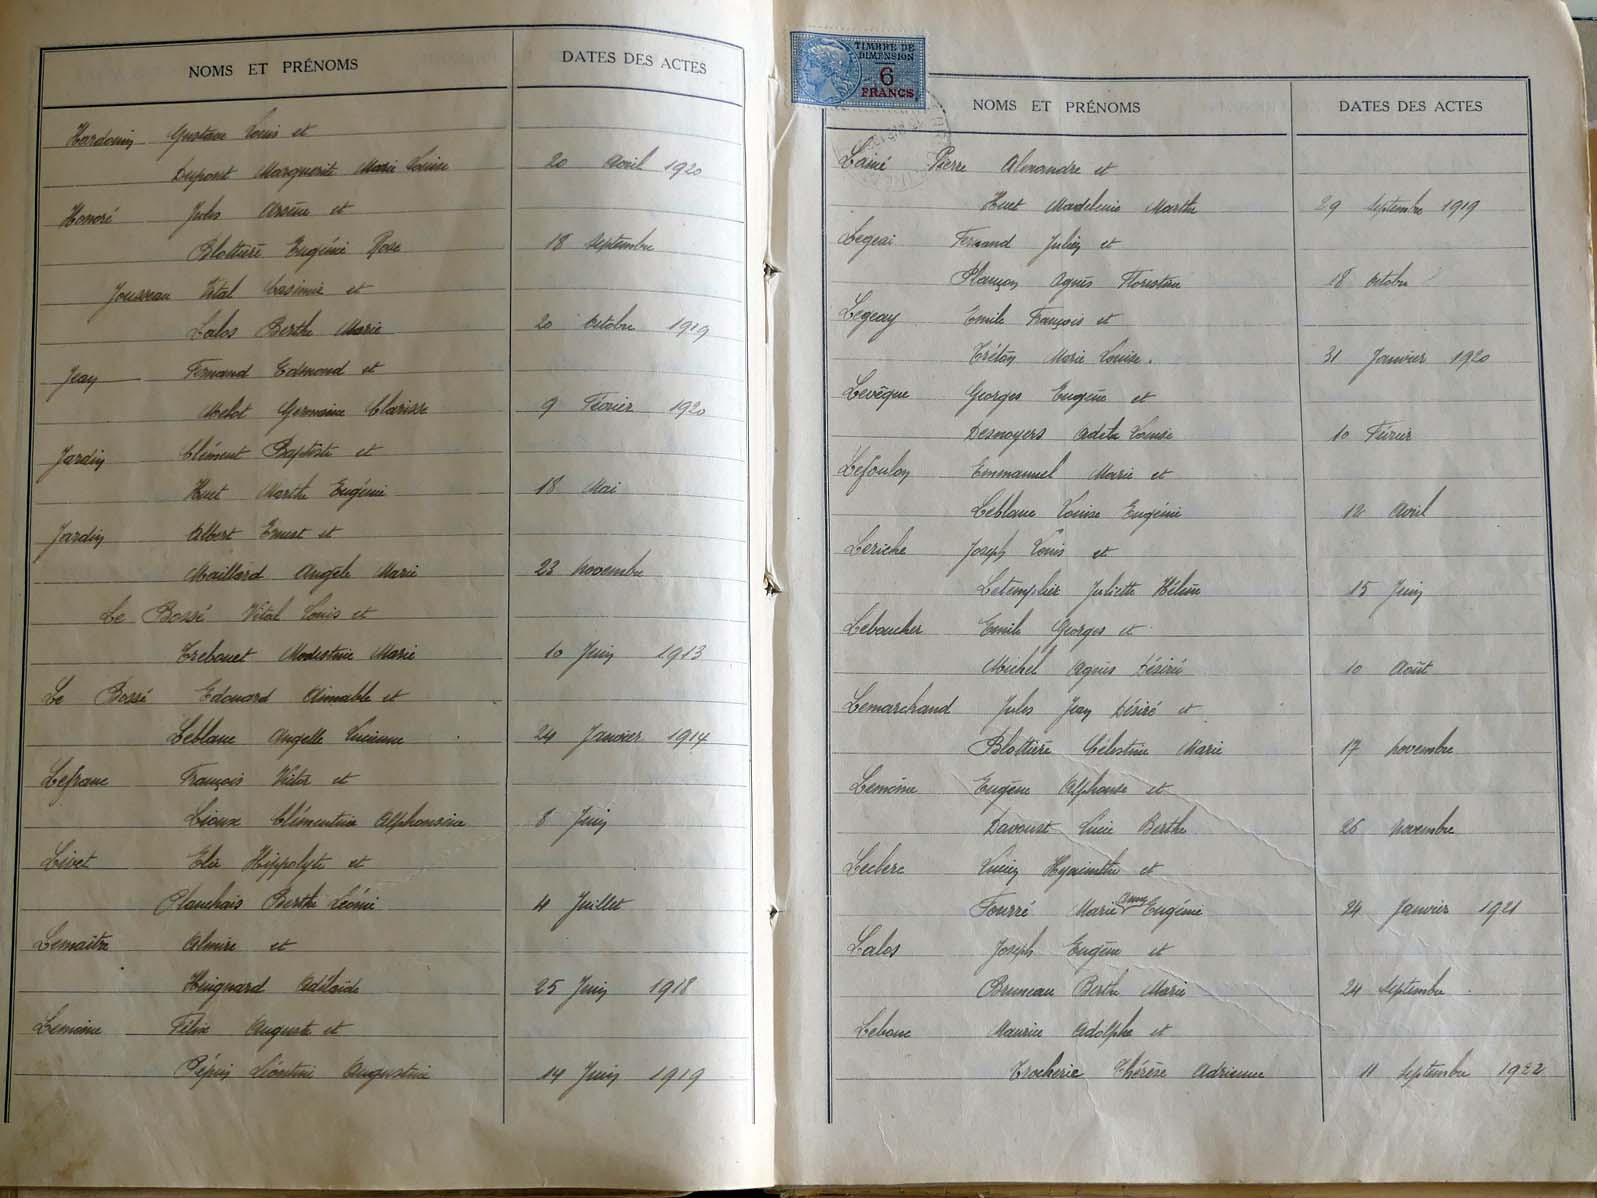 NOMS ET PRÉNOMS DATES DES ACTES
Hardouin Gustave Louis et
Dupont Marguerit Marie Louise 20 Avril 1920
Honoré Jules Arsène et
Blottière Eugénie Rose 18 Septembre
Jousseau Vital Casimir et
Lalos Berthe Marie 20 Octobre 1919
Jean Fernand Edmond et
Melot Germaine Clarisse 9 Février 1920
Jardin Clément Baptiste et
Huet Marthe Eugénie 18 Mai
Jardin Albert Ernest et
Maillard Angèle Marie 23 Novembre
Le Bossé Vital Louis et
Trebouet Modestine Marie 10 Juin 1913
Le Bossé Edouard Aimable et
Leblanc Angelle Lucienne 24 Janvier 1914
Lefranc François Victor et
Lioux Clémentine Alphonsine 8 Juin
Livet Elie Hippolyte et
Planchais Berthe Léonie 4 Juillet
Lemaitre Almire et
Huignard Adélaïde 25 Juin 1918
Lemoine Félix Auguste et
Pépin Léontine Augustine 14 Juin 1919
TIMBRE DE
DIMENSION
6
FRANCS
NOMS ET PRÉNOMS DATES DES ACTES
Lainé Pierre Alexandre et
Huet Madeleine Marthe 29 Septembre 1919
Legeai Fernand Julien et
Plançon Agnès Florestine 18 Octobre
Legeay Emile François et
Trétan Marie Louise. 31 Janvier 1920
Levêque Georges Eugène et
Desnoyers Adèle Louise 10 Février
Lefoulon Emmanuel Marie et
Leblanc Louise Eugénie 12 Avril
Leriche Joseph Louis et
Letemplier Juliette Hélène 15 Juin
Leboucher Emile Georges et
Michel Agnès Désiré 10 Août
Lemarchand Jules Jean Désiré et
Blottière Célestine Marie 17 Novembre
Lemoine Eugène Alphonse et
Davoust Lucie Berthe 26 Novembre
Leclerc Lucien Hyacinthe et
Fourré Marie Anne Eugénie 24 Janvier 1921
Lalos Joseph Eugène et
Bruneau Berthe Marie 24 Septembre
Lebouc Maurice Adolphe et
Trocherie Thérèse Adrienne 11 Septembre 1922